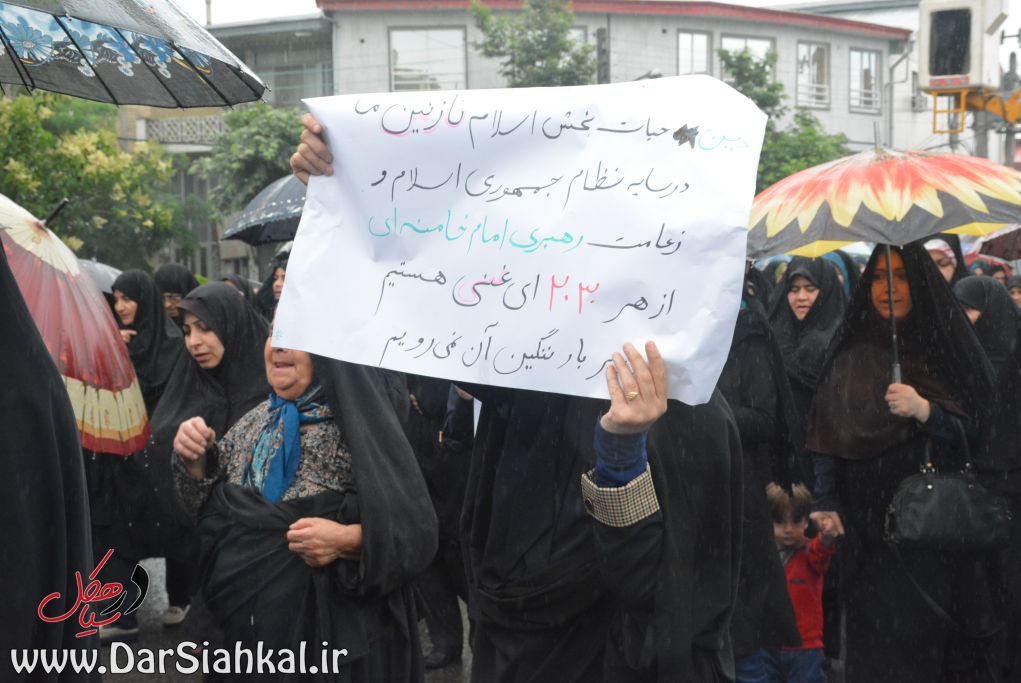 دین حیات بخش اسلام نازنین ما
در سایه نظام جمهوری اسلام و
زعامت رهبری امام خامنه ای
از هر ۲۰۳۰ ای غنی هستیم
بار ننگین آن نمی رویم
در سیاهکل
www.DarSiahkal.ir